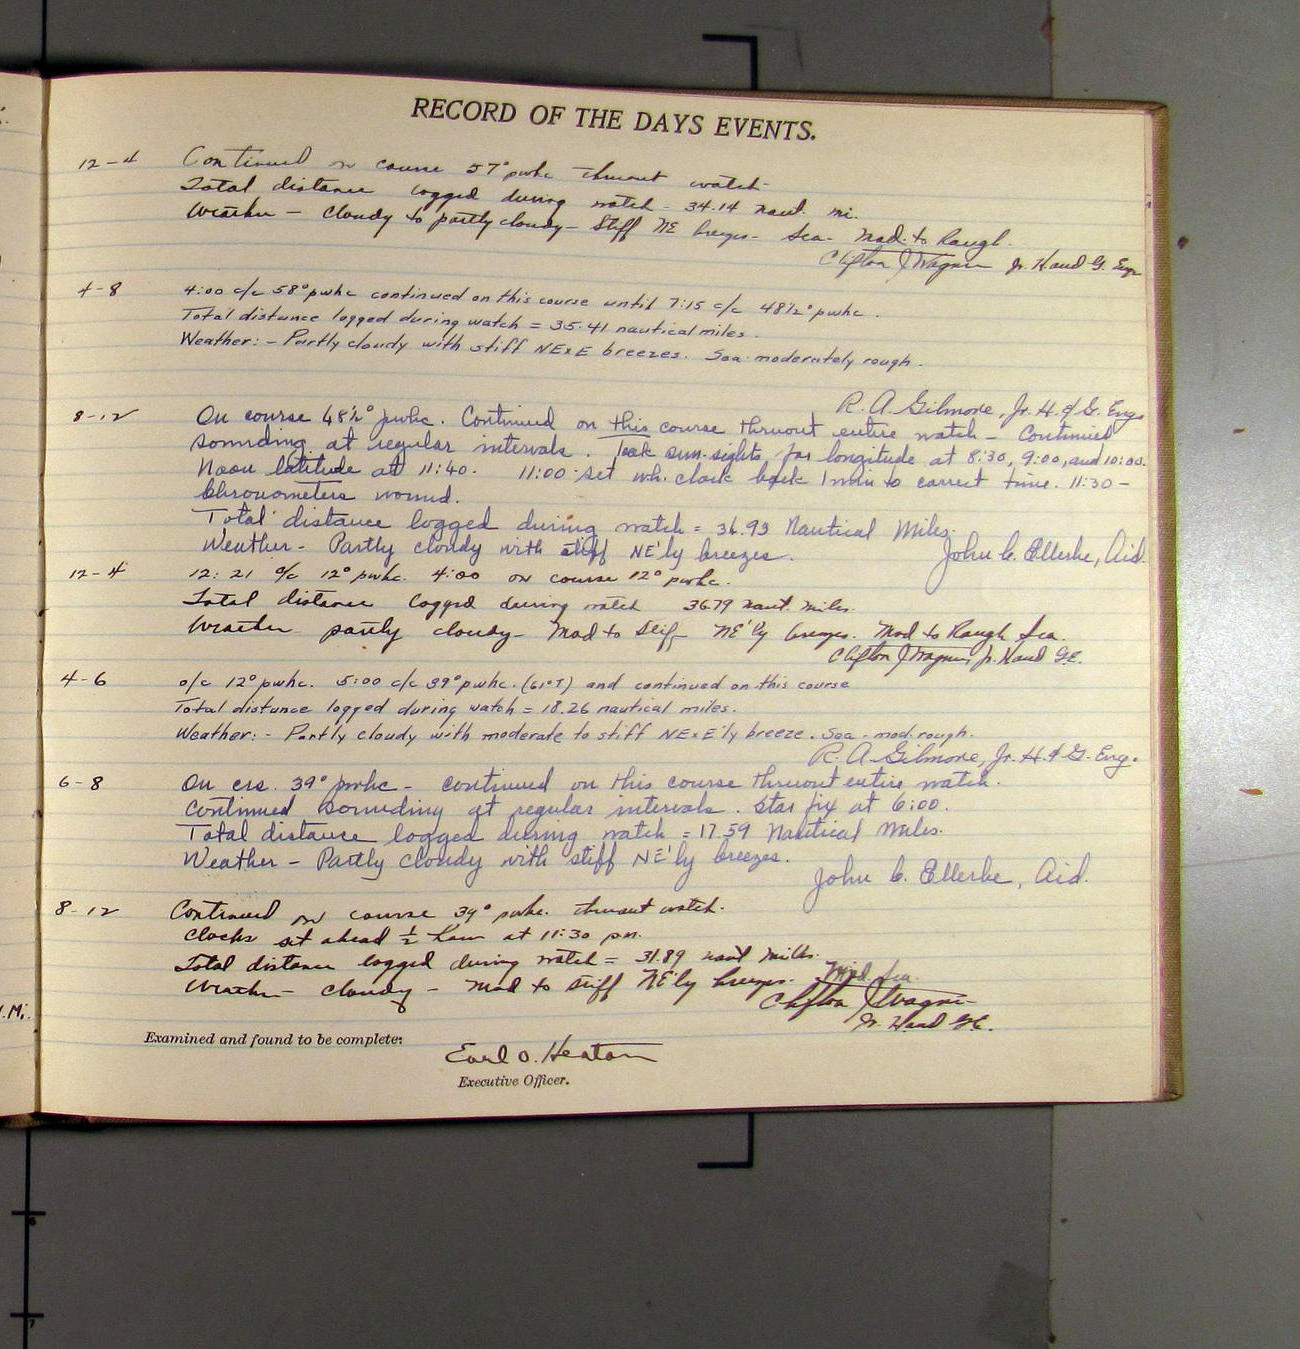 RECORD OF THE DAYS EVENTS.
12-4 Continued on course 57° pwhc thruout watch-
Total distance logged during watch - 34.14 naut. mi.
Weather - Cloudy to partly cloudy - Stiff NE breezes - Sea - Mod. to Rough.
Clifton J Wagner Jr. H and G. Engr
4-8 4:00 c/c 58° pwhc continued on this course until 7:15 c/c 48½° pwhc.
Total distance logged during watch = 35.41 nautical miles.
Weather:- Partly cloudy with stiff NExE breezes. Sea moderately rough.
R. A. Gilmore, Jr. H. & G. Engr
8-12 On course 48½° pwhc. Continued on this course thruout entire watch - Continued
sounding at regular intervals. Took sun-sights for longitude at 8:30, 9:00, and 10:00.
Noon latitude at 11:40. 11:00 - set wh. clock back 1 min to correct time. 11:30 -
Chronometers wound.
Total distance logged during watch = 36.93 Nautical Miles.
Weather - Partly cloudy with stiff NE'ly breezes.
John C. Ellerbe, Aid.
12-4 12:21 c/c 12° pwhc. 4:00 on course 12° pwhc.
Total distance logged during watch 36.79 naut. miles.
Weather partly cloudy - Mod to Stiff NE'ly breezes. Mod to Rough Sea.
Clifton J Wagner Jr. H and G.E.
4-6 o/c 12° pwhc. 5:00 c/c 39° pwhc. (61°T) and continued on this course
Total distance logged during watch = 18.26 nautical miles.
Weather:- Partly cloudy with moderate to stiff NExE'ly breeze. Sea - mod. rough.
R. A. Gilmore, Jr. H. & G. Eng.
6-8 On crs. 39° pwhc - continued on this course thruout entire watch.
Continued sounding at regular intervals. Star fix at 6:00.
Total distance logged during watch = 17.59 Nautical Miles.
Weather - Partly cloudy with stiff NE'ly breezes.
John C. Ellerbe, Aid.
8-12 Continued on course 39° pwhc. thruout watch.
Clocks set ahead ½ hour at 11:30 pm.
Total distance logged during watch = 31.89 naut miles.
Weather - cloudy - Mod to stiff NE'ly breezes. Mod Sea.
Clifton J Wagner
Jr. H and G.E.
Examined and found to be complete:
Earl O. Heaton
Executive Officer.